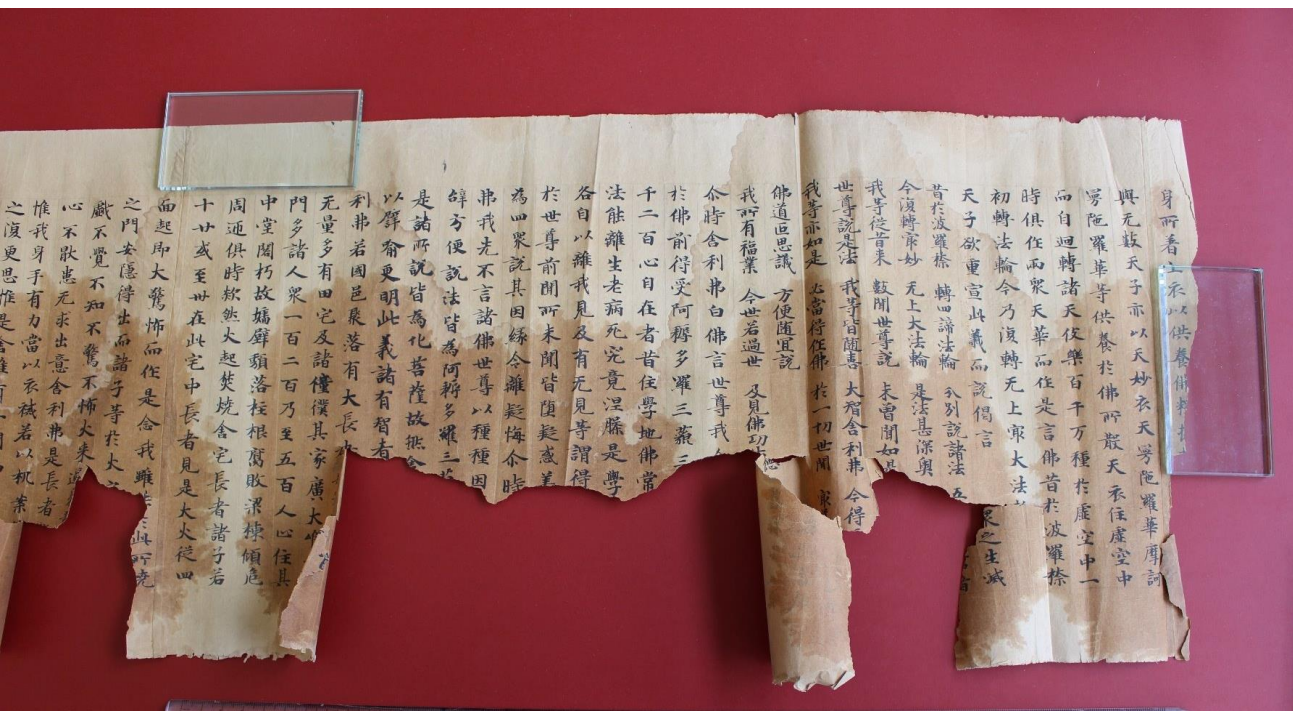 身所着衣以供養佛釋提
與无數天子亦以天妙衣天曼陁羅華摩訶
曼陁羅華等供養於佛所散天衣住虛空中
而自迴轉諸天伎樂百千万種於虛空中一
時俱作雨衆天華而作是言佛昔於波羅㮈
初轉法輪今乃復轉无上㝡大法
天子欲重宣此義而說偈言
昔於波羅㮈 轉四諦法輪 分別說諸法 五衆之生滅
今復轉㝡妙 无上大法輪 是法甚深奧
我等從昔來 數聞世尊說 未曾聞如是
世尊說是法 我等皆隨喜 大智舍利弗 今得
我等亦如是 必當得作佛 於一切世間 㝡
佛道叵思議 方便隨宜說
我所有福業 今世若過世 及見佛功
尒時舍利弗白佛言世尊我今
於佛前得受阿耨多羅三藐三
千二百心自在者昔住學地佛常
法能離生老病死究竟涅槃是學
各自以離我見及有无見等謂得
於世尊前聞所未聞皆墮疑惑善
為四衆說其因緣令離疑悔尒時
弗我先不言諸佛世尊以種種因
辝方便說法皆為阿耨多羅三藐
是諸所說皆為化菩薩故然舍
以譬喻更明此義諸有智者
利弗若國邑聚落有大長者
无量多有田宅及諸僮僕其家廣大唯
門多諸人衆一百二百乃至五百人止住其
中堂閣朽故墻壁頹落柱根腐敗梁棟傾危
周迊俱時欻然火起焚燒舍宅長者諸子若
十廿或至卅在此宅中長者見是大火從四
面起即大驚怖而作是念我雖能於此所燒
之門安隱得出而諸子等於火
戲不覺不知不驚不怖火來逼
心不猒患无求出意舍利弗是長者
惟我身手有力當以衣裓若以机案
之復更思惟是舍唯有一門